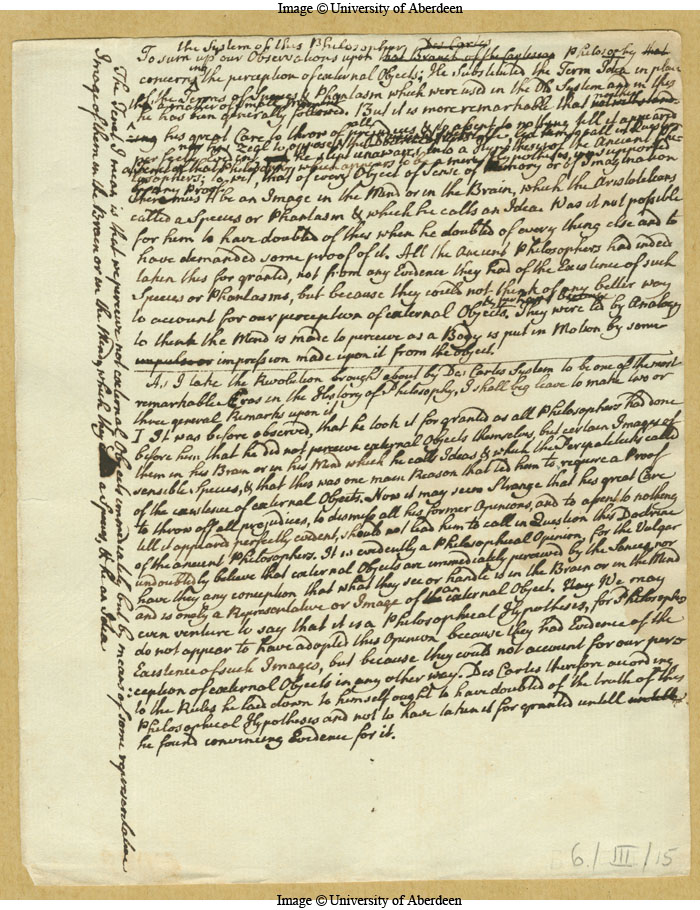 Image © University of Aberdeen
the System of this Philosopher Des Cartes
To sum up our Observations upon that Branch of the Cartesian Philosophy that
concerning the perception of external Objects; He Substituted the Term Idea in place
of the Terms of Species & Phantasm which were used in the Old System and in this
he has been generally followed. But it is more remarkable that notwithstand-
ing his great Care to throw off all prejudices & to assent to nothing till it appeared
perfectly evident he slept unawares into a Hypothesis of the Ancient Phi-
losophers; to wit, that of every Object of Sense of Memory or of Imagination
there must be an Image in the Mind or in the Brain, which the Aristotelians
called a Species or Phantasm & which he calls an Idea. Was it not possible
for him to have doubted of this when he doubted of every thing else and to
have demanded some proof of it. All the Ancient Philosophers had indeed
taken this for granted, not from any Evidence they had of the Existence of such
Species or Phantasms, but because they could not think of any better way
to account for our perception of external Objects. They were led by Analogy
to think the Mind is made to perceive as a Body is put in Motion by some
impulse or impression made upon it from the object.
As I take the Revolution brought about by Des Cartes System to be one of the most
remarkable Eras in the History of Philosophy, I shall beg leave to make two or
three general Remarks upon it
I It was before observed, that he took it for granted as all Philosophers had done
before him that he did not perceive external Objects themselves but certain Images of
them in his Brain or in his Mind which he calls Ideas & which the Peripateticks called
sensible Species, & that this was one main Reason that led him to require a Proof
of the existence of external Objects. Now it may seem Strange that his great Care
to throw off all prejudices, to dismiss all his former Opinions, and to assent to nothing
till it appeared perfectly evident, should not lead him to call in Question this Doctrine
of the ancient Philosophers. It is evidently a Philosophical Opinion. For the Vulgar
undoubtedly believe that external Objects are immediately perceived by the Senses, nor
have they any conception that what they see or handle is in the Brain or in the Mind
and is onely a Representative or Image of an external Object. Nay We may
even venture to say that it is a Philosophical Hypotheses, for Philosophers
do not appear to have adopted this Opinion because they had Evidence of the
Existence of such Images, but because they could not account for our per-
:ception of external Objects in any other way. Des Cartes therefore according
to the Rules he laid down to himself ought to have doubted of the truth of this
Philosophical Hypotheses and not to have taken it for granted untill untill
he found convincing Evidence for it.
The Tenet I mean is that we perceive not external Objects immediately but by means of some representative
Image of them in the Brain or in the Mind, which they a Species, & he an Idea
6/III/15
Image © University of Aberdeen